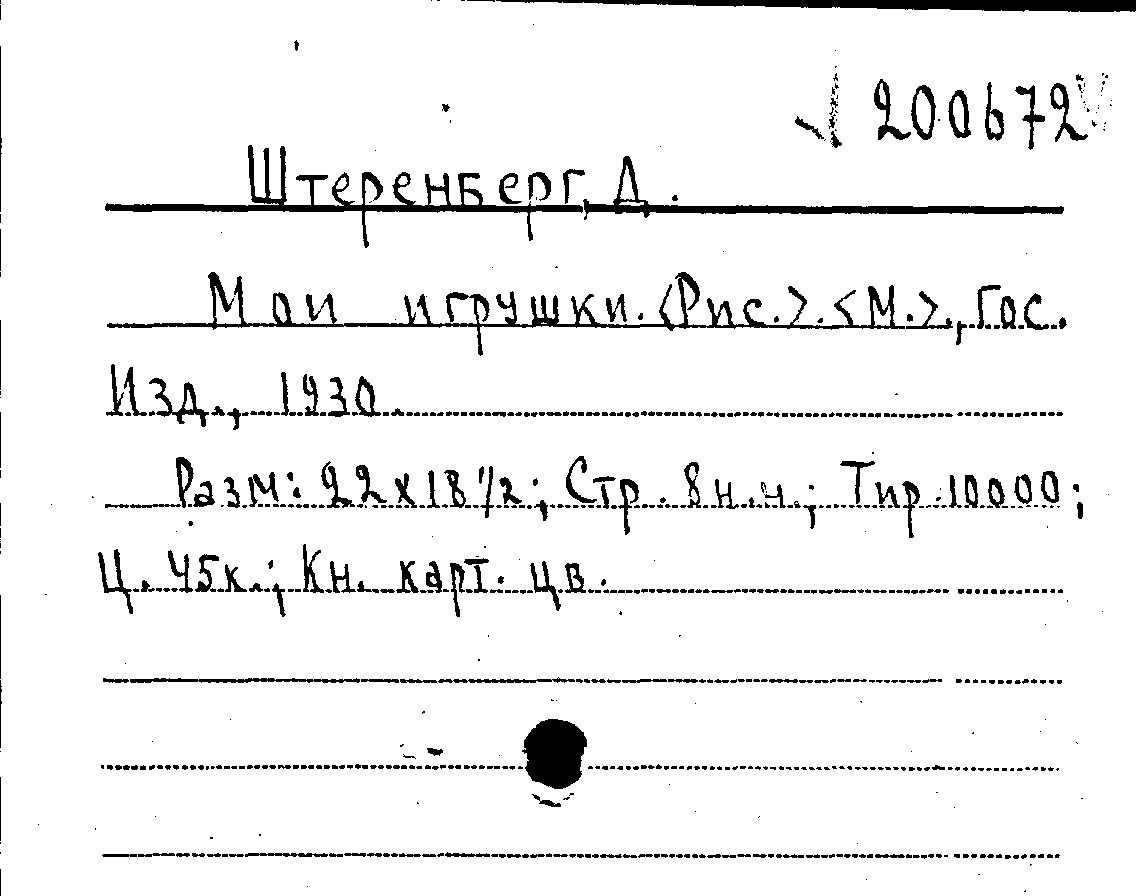 200672
Штеренберг, Д.
Мои игрушки. <Рис.>. <М.>, Гос.
Изд., 1930.
Разм: 22х18 1/2; Стр. 8 н.н.; Тир. 10000;
Ц. 45к.; Кн. карт. цв.